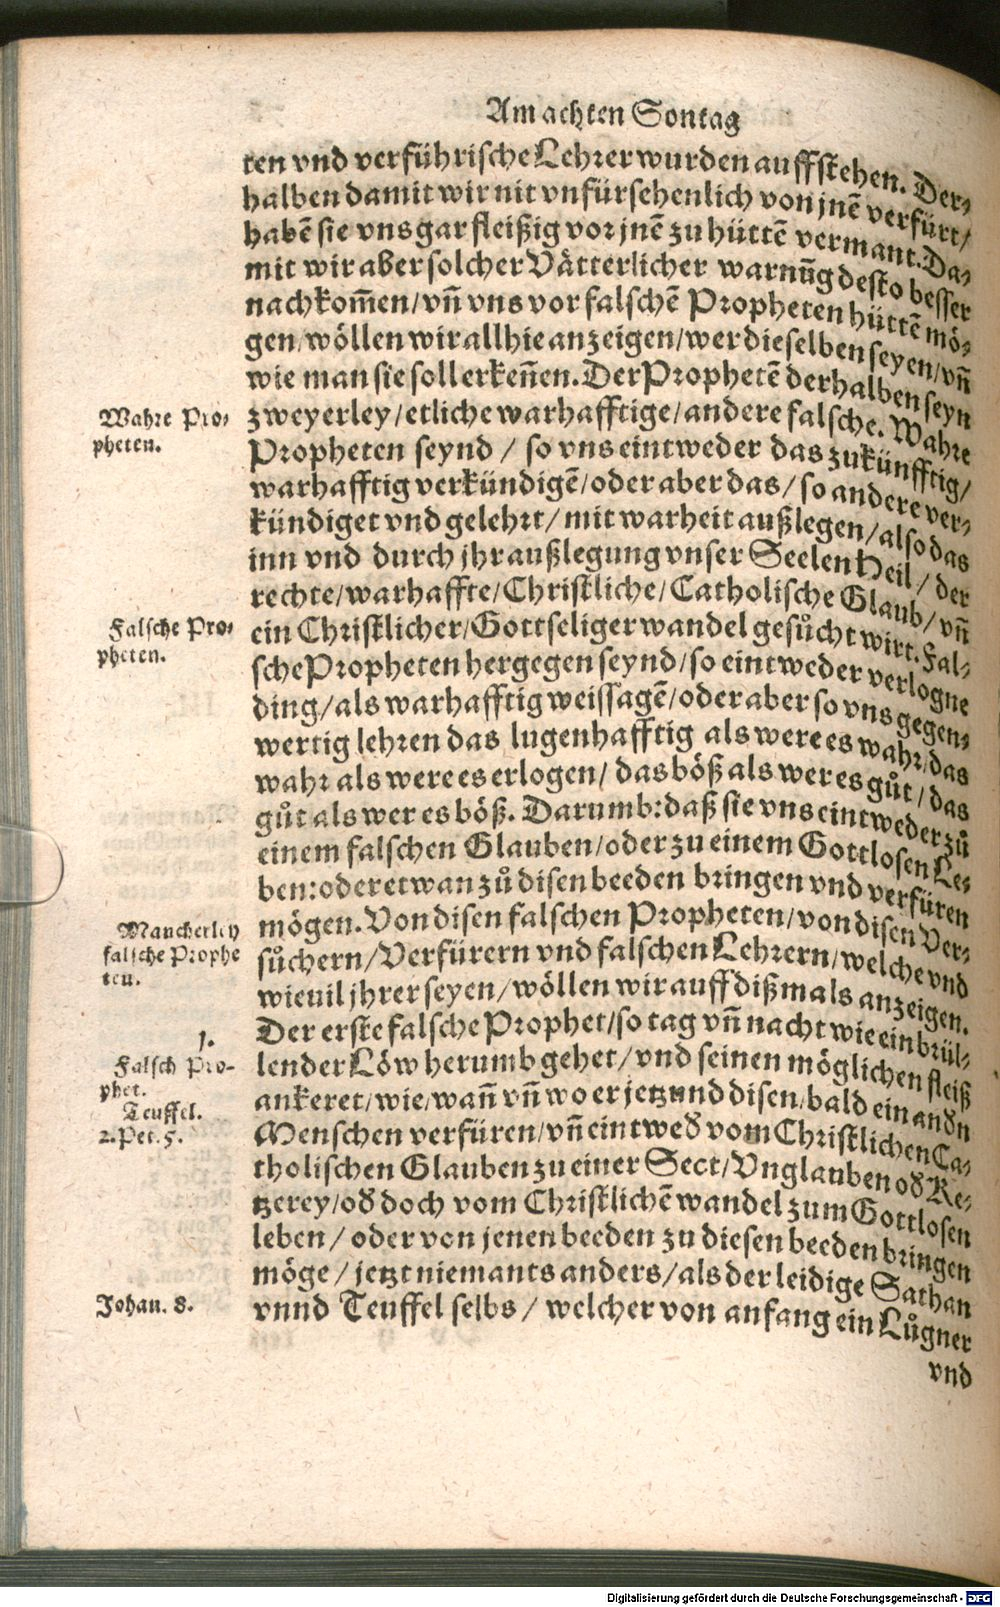 Am achten Sontag
ten vnd verführische Lehrer wurden auffstehen. Der-
halben damit wir nit vnfürsehenlich von jnē verfürt/
habē sie vns gar fleißig vor jnē zu hüttē vermant. Da-
mit wir aber solcher Vätterlicher warnūg desto besser
nachkom̄en/vn̄ vns vor falschē Propheten hüttē mö-
gen/wöllen wir allhie anzeigen/wer dieselben seyen/vn̄
wie man sie soll erken̄en. Der Prophetē derhalben seyn
Wahre Pro-
pheten.
zweyerley/etliche warhafftige/andere falsche. Wahre
Propheten seynd / so vns eintweder das zukünfftig/
warhafftig verkündigē/oder aber das/so andere ver-
kündiget vnd gelehrt/mit warheit außlegen/also das
inn vnd durch jhr außlegung vnser Seelen Heil / der
rechte/warhaffte/Christliche/Catholische Glaub/vn̄
Falsche Pro-
pheten.
ein Christlicher/Gottseliger wandel gesůcht wirt. Fal-
sche Propheten hergegen seynd/so eintweder verlogne
ding/als warhafftig weissagē/oder aber so vns gegen-
wertig lehren das lugenhafftig als were es wahr/das
wahr als were es erlogen/das böß als wer es gůt/das
gůt als wer es böß. Darumb: daß sie vns eintweder zů
einem falschen Glauben/oder zu einem Gottlosen Le-
ben: oder etwan zů disen beeden bringen vnd verfüren
Mancherley
falsche Prophe
ten.
mögen. Von disen falschen Propheten/von disen Ver-
sůchern/Verfürern vnd falschen Lehrern/welche vnd
wieuil jhrer seyen/wöllen wir auff dißmals anzeigen.
1.
Falsch Pro-
phet.
Teuffel.
2. Pet. 5.
Der erste falsche Prophet/so tag vn̄ nacht wie ein brül-
lender Löw herumb gehet/vnd seinen möglichen fleiß
ankeret/wie/wan̄ vn̄ wo er jetzund disen/bald ein andn
Menschen verfüren/vn̄ eintwed vom Christlichen Ca-
tholischen Glauben zu einer Sect/Vnglauben od Ke-
tzerey/od doch vom Christlichē wandel zum Gottlosen
leben/ oder von jenen beeden zu diesen beeden bringen
möge/ jetzt niemants anders/als der leidige Sathan
Johan. 8.
vnnd Teuffel selbs / welcher von anfang ein Lůgner
vnd
Digitalisierung gefördert durch die Deutsche Forschungsgemeinschaft - DFG